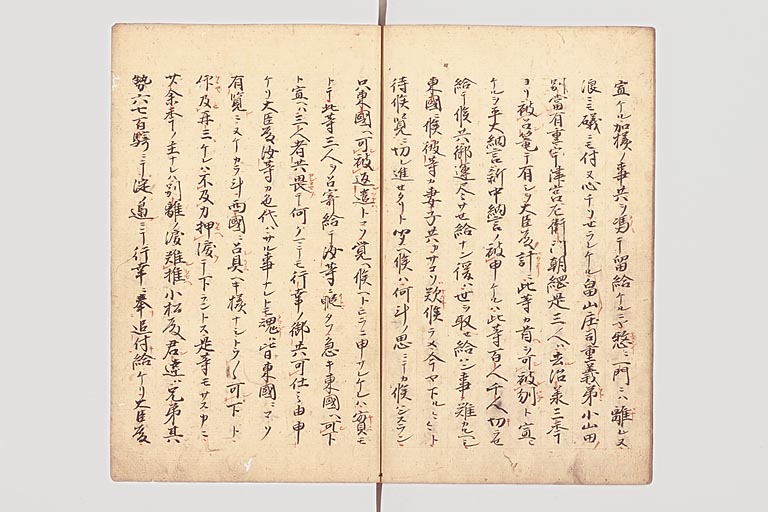 宣ケル加様ノ事共ヲ馮テ留給ケルニヤ憖ニ一門ニハ離レヌ
浪ニモ礒ニモ付ヌ心チソセラレケル畠山庄司重義弟小山田
別當有重宇津宮左衛門朝綱是三人ハ去治承三年
ヨリ被召篭テ有シヲ大臣殿計ニ此等カ首ヲ可被刎ト宣ニ
ケルヲ平大納言新中納言ノ被申ケルハ此等百人千人切セ
給テ候共御運尽サセ給ナン後ハ世ヲ取セ給ハン事難カルヘシ
東國ニ候彼等カ妻子共カサコソ歎候ラメ今ヤ下ルヽト
待候覧ニ切レ進セタリト聞ヘ候ハ何斗ノ思ニテカ候ハンスラン
只東國ヘ可被返遣トコソ覚ヘ候ヘトニラニ申サレケレハ實モ
トテ此等三人ヲ召寄給テ汝等ニ暇タフ急キ東國ヘ可下
ト宣ヘハ三人者共畏テ何クマテモ行幸ノ御共可仕之由申
ケリ大臣殿汝等カ色代ハサル事ナレトモ魂ハ皆東國ニコソ
有覧ニヌケカラ斗ヲ西國ニ召具ヘキ様ナシトクヽ可下ト
仰及再三ケレハ不及力押涙テ下ラントス是等モサスカニ
廿余年ノ主ナレハ別離ノ涙難推小松殿君達ハ兄弟其
勢六七百騎ニテ淀ノ邊ニテ行幸ニ奉追付給ケリ大臣殿